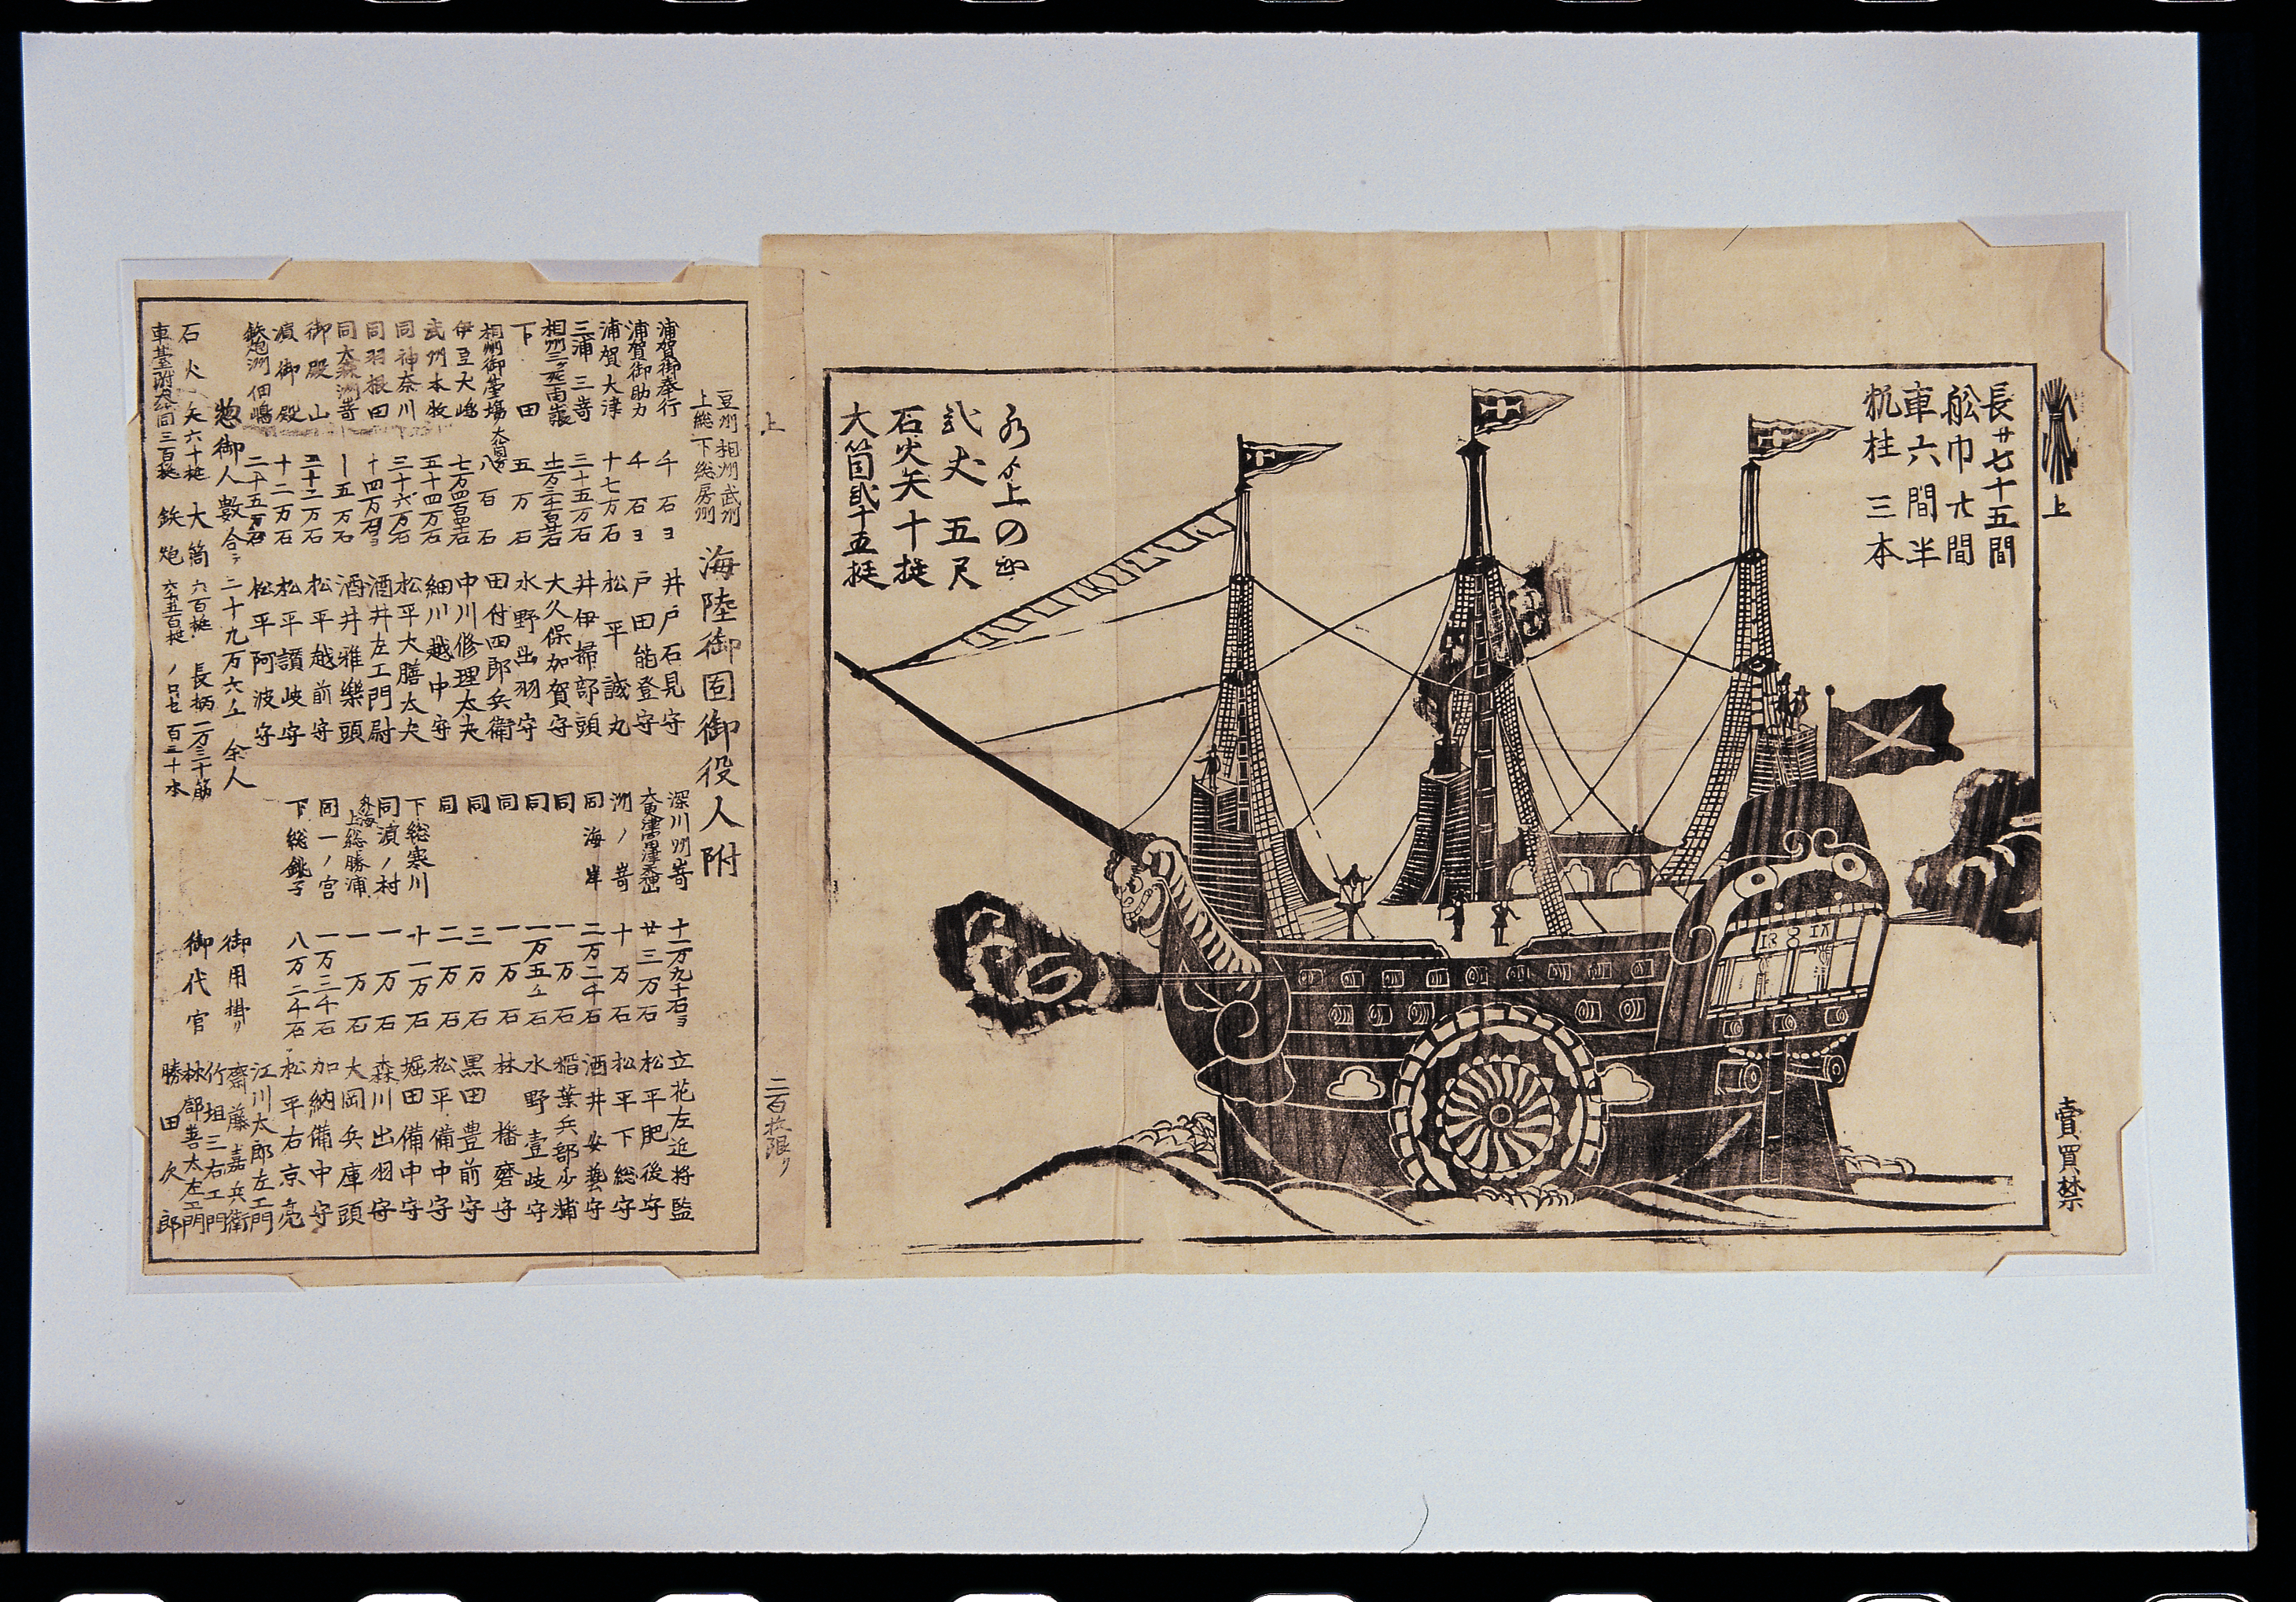 上
賣買禁
長サ七十五間
舩巾廿間
車六間半
帆柱 三本
水ゟ上の出
弐丈五尺
石火矢十挺
大筒弐十五挺
上
二百枚限り
豆州 相州 武州
上総 下総 房州
海陸御固御役人附
浦賀御奉行 千石ヨ 井戸石見守
浦賀御助力 千石ヨ 戸田能登守
浦賀大津 十七万石 松平誠丸
三浦三崎 三十五万石 井伊掃部頭
大久保加賀守
下田 五万石 水野出羽守
相州御台場 八百石 田付四郎兵衛
伊豆大嶋 中川修理太夫
武州本牧 五十四万石 細川越中守
同神奈川 三十六万石 松平大膳太夫
同羽根田 十四万石ヨ 酒井左エ門尉
同大森洲崎 十五万石 酒井雅樂頭
御殿山 三十二万石 松平越前守
濵御殿 十二万石 松平讃岐守
鉄炮洲 佃嶋 二十五万石 松平阿波守
深川州崎 十一万九千石ヨ 立花左近将監
廿三万石 松平肥後守
洲ノ崎 十万石 松平下総守
同海岸 二万二千石 酒井安藝守
同 一万石 稲葉兵部少輔
同 一万五千石 水野壹岐守
同 一万石 林播磨守
同 三万石 黒田豊前守
同 二万石 松平備中守
下総寒川 十一万石 堀田備中守
同濵ノ村 一万石 森川出羽守
外海 上総勝浦 一万石 大岡兵庫頭
同一ノ宮 一万三千石 加納備中守
下総銚子 八万二千石 松平右京亮
御用掛リ
御代官
江川太郎左エ門
齋藤嘉兵衛
竹垣三右エ門
林部善太左エ門
勝田次郎
惣御人數合テ 二十九万六千余人
石火矢六十挺 大筒 六百挺 長柄一万三千筋
車臺附大筒三百挺 鉄炮